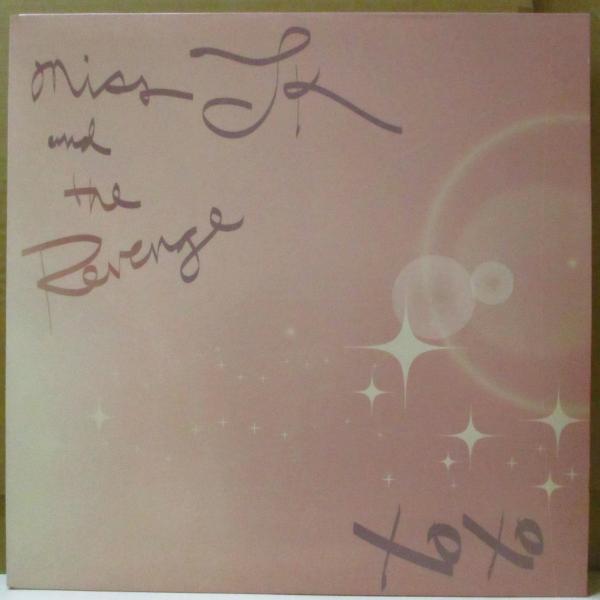 Miss TK
and
the
Revenge
XOXO